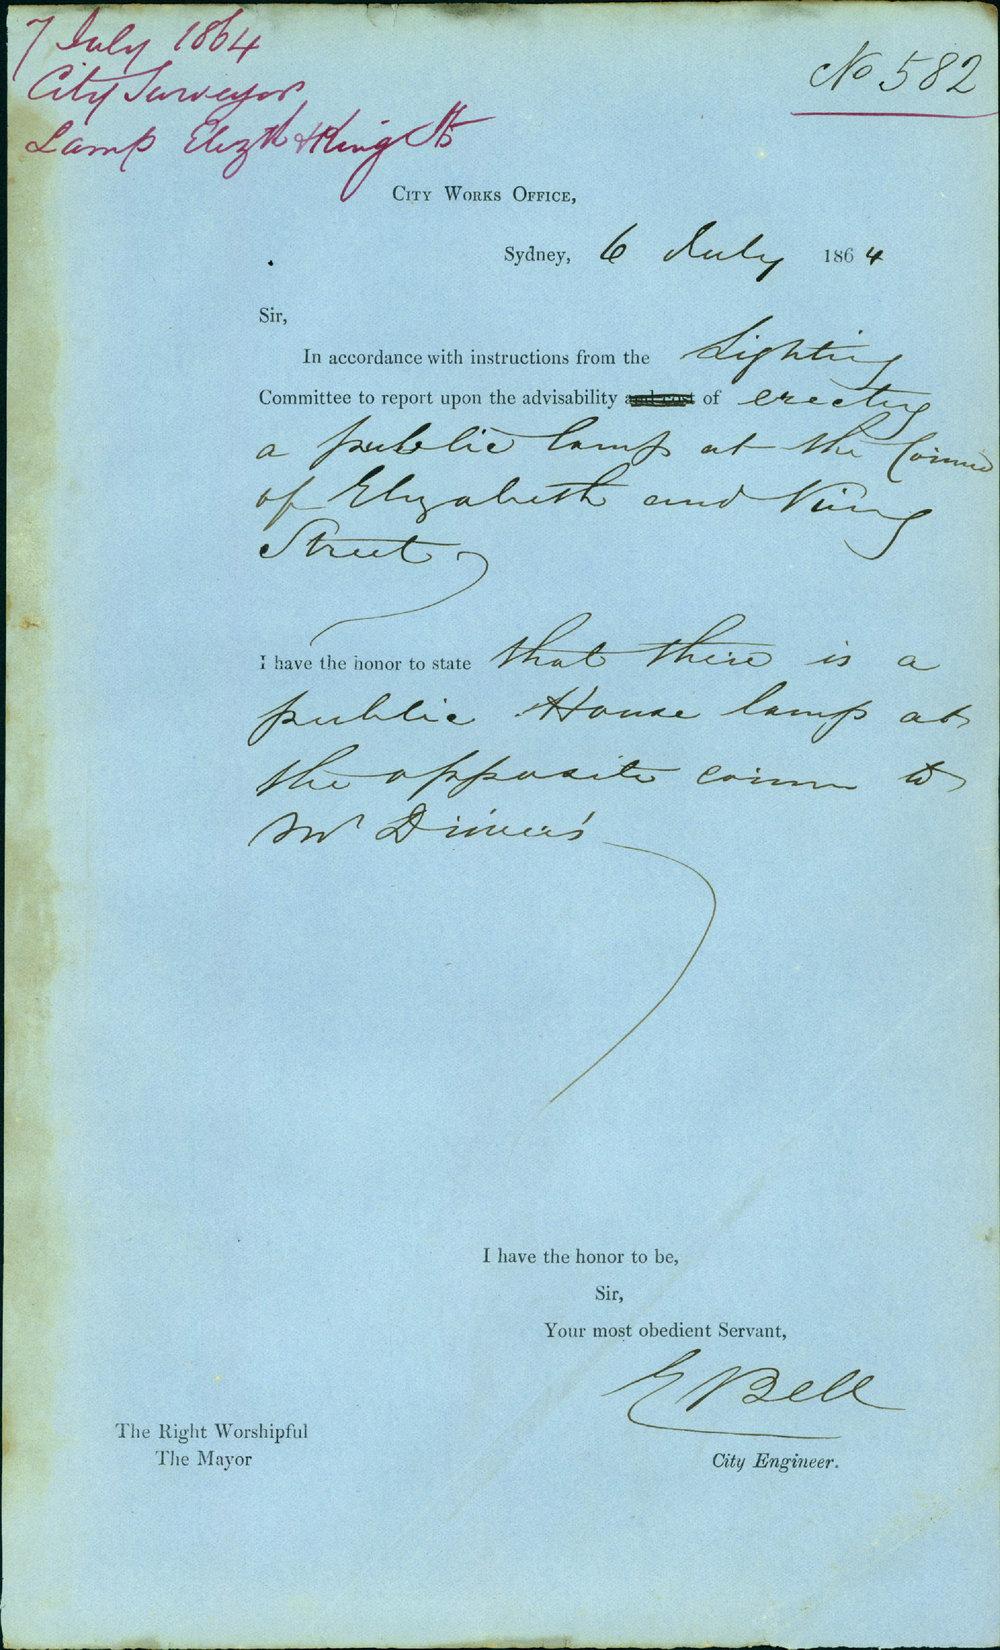 7 July 1864
City Surveyor
Lamp Elizth & King Sts
No 582
City Works Office,
Sydney, 6 July 1864
Sir,
In accordance with instructions from the Lighting
Committee to report upon the advisability and cost of erecting
a public lamp at the Corner
of Elizabeth and King
Street
I have the honor to state that there is a
public House lamp at
the opposite corner to
Mr
I have the honor to be,
Sir,
Your most obedient Servant,
E Bell
The Right Worshipful
The Mayor
City Engineer.